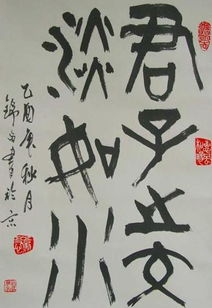 君子之交
淡如水
乙酉年秋月
锦
书於京